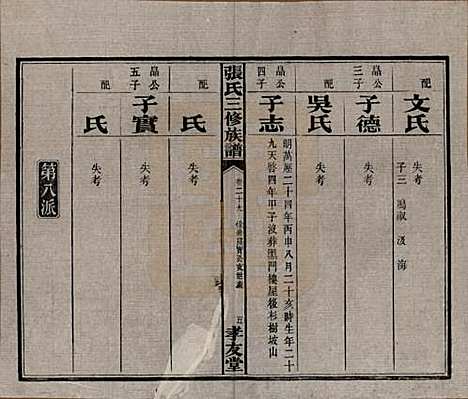 配
文氏
失考
子三
晶公
三子
子德
失考
配
吳氏
失考
晶公
四子
子志
明萬歷二十四年丙申八月二十亥時生年二十
九天啓四年甲子沒葬黑門樓屋後杉樹坡山
張氏三修族譜
卷二十九
五
孝友堂
配
氏
失考
晶公
五子
子實
失考
配
氏
失考
第八派